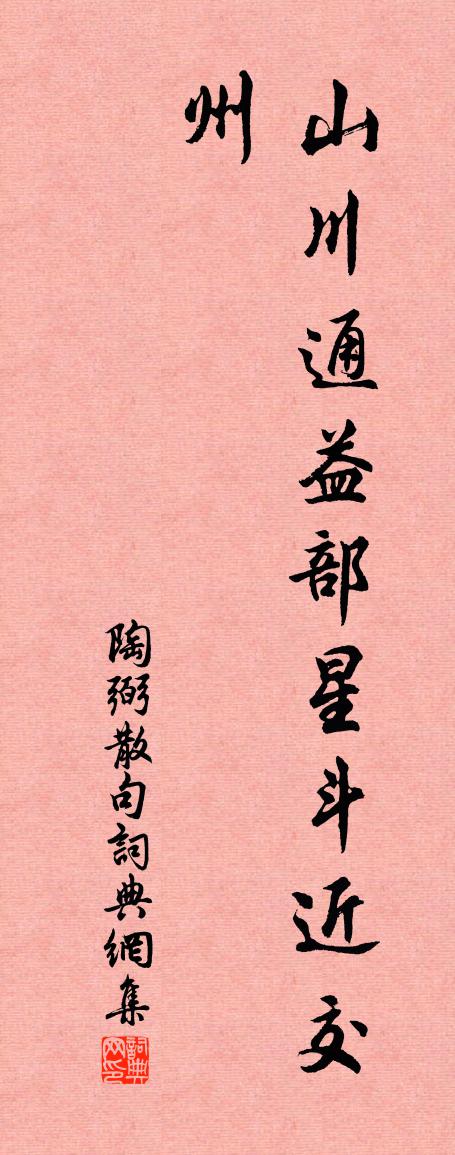 山川通益部星斗近交
州
陶弼散句詞典網集
詞典网印